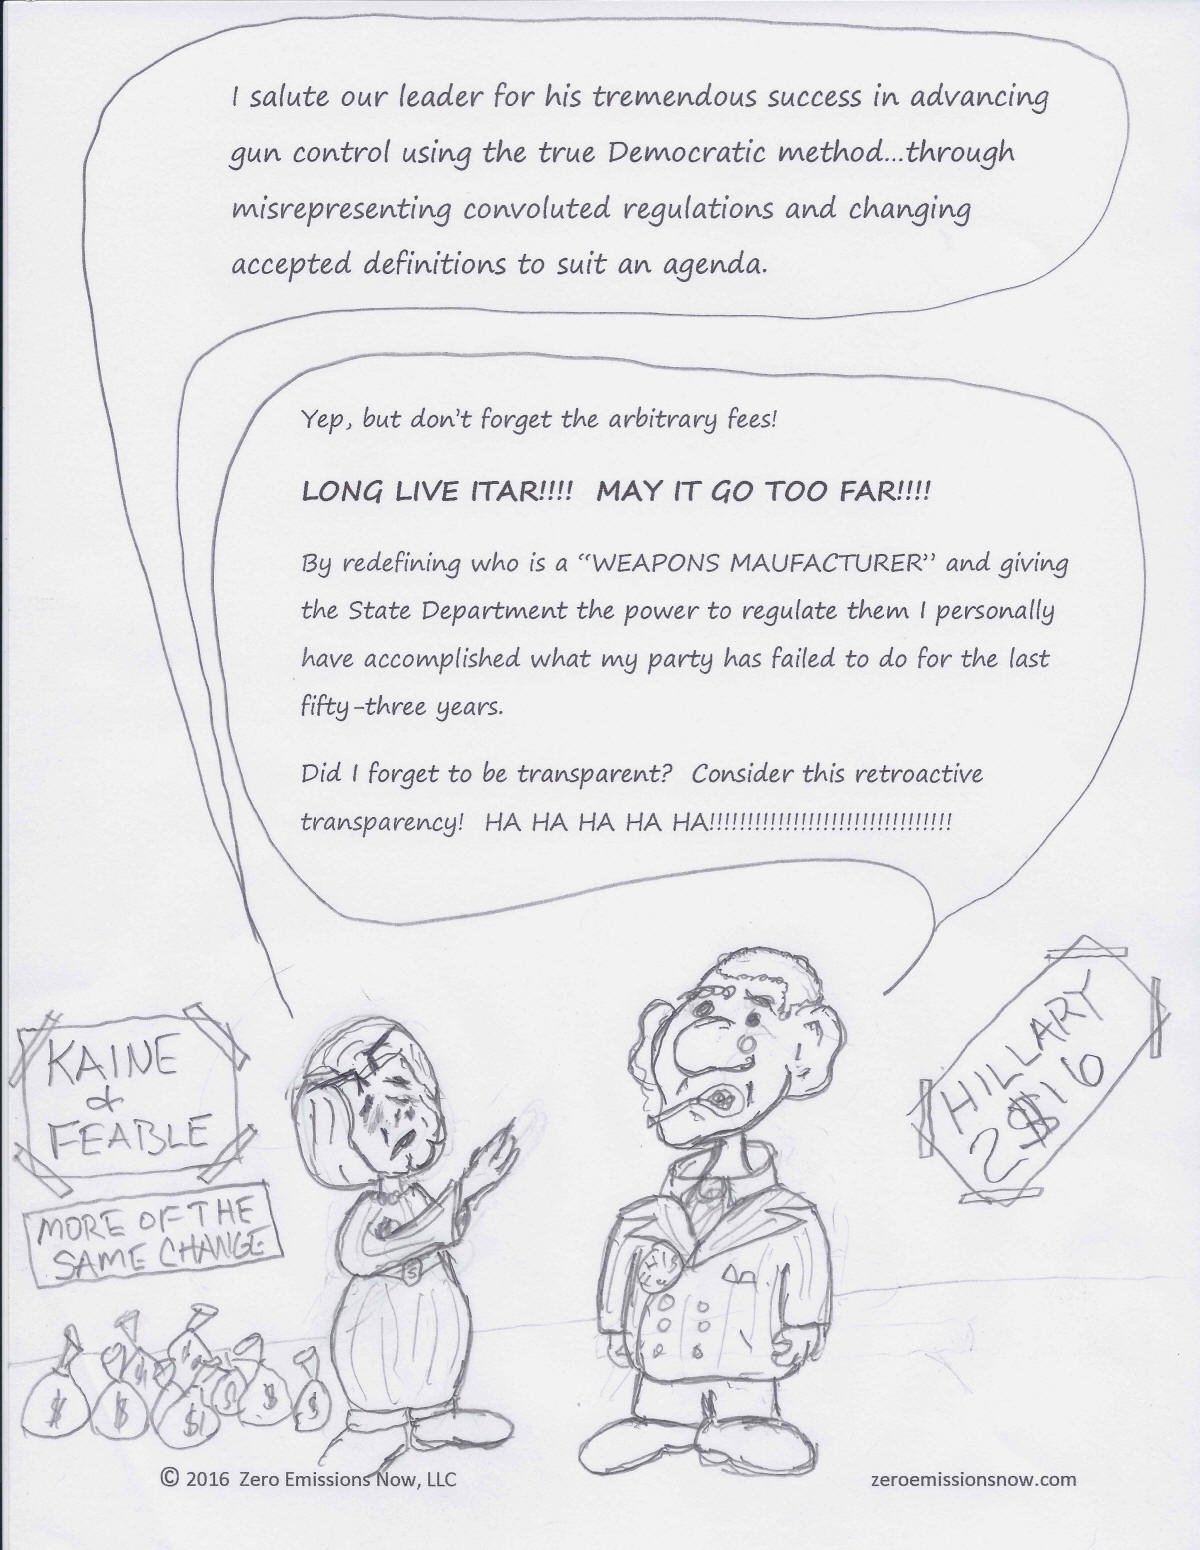 I salute our leader for his tremendous success in advancing
gun control using the true Democratic method...through
misrepresenting convoluted regulations and changing
accepted definitions to suit an agenda.
Yep, but don't forget the arbitrary fees!
LONG LIVE ITAR!!!! MAY IT GO TOO FAR!!!!
By redefining who is a “WEAPONS MAUFACTURER” and giving
the State Department the power to regulate them I personally
have accomplished what my party has failed to do for the last
fifty-three years.
Did I forget to be transparent? Consider this retroactive
transparency! HA HA HA HA HA!!!!!!!!!!!!!!!!!!!!!!!!!!!!!!!!
KAINE
&
FEABLE
MORE OF THE
SAME CHANGE
HILLARY
2$16
$
$
$
$1
$
$
S
© 2016 Zero Emissions Now, LLC
zeroemissionsnow.com